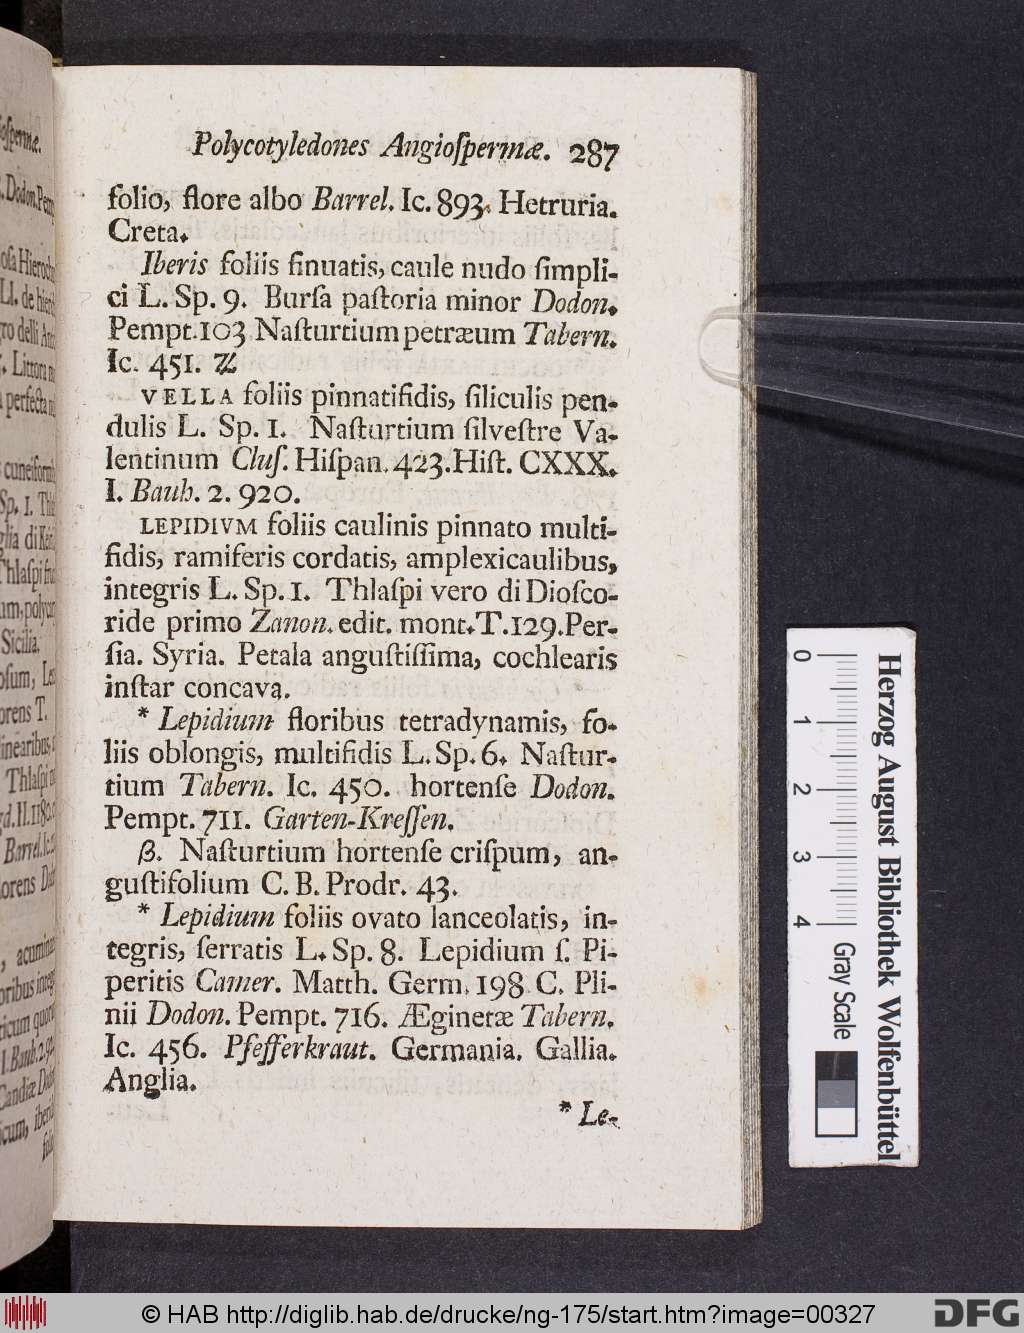 Polycotyledones Angioſpermæ. 287
folio, flore albo Barrel. Ic. 893. Hetruria.
Creta.
Iberis foliis ſinuatis, caule nudo ſimpli-
ci L. Sp. 9. Burſa paſtoria minor Dodon.
Pempt. 103 Naſturtium petræum Tabern.
Ic. 451.
VELLA foliis pinnatifidis, ſiliculis pen-
dulis L. Sp. 1. Naſturtium ſilveſtre Va-
lentinum Cluſ. Hiſpan. 423. Hiſt. CXXX.
I. Bauh. 2. 920.
LEPIDIVM foliis caulinis pinnato multi-
fidis, ramiferis cordatis, amplexicaulibus,
integris L. Sp. 1. Thlaſpi vero di Dioſco-
ride primo Zanon. edit. mont. T. 129. Per-
ſia. Syria. Petala anguſtiſſima, cochlearis
inſtar concava.
* Lepidium floribus tetradynamis, fo-
liis oblongis, multifidis L. Sp. 6. Naſtur-
tium Tabern. Ic. 450. hortenſe Dodon.
Pempt. 711. Garten-Kreſſen.
β. Naſturtium hortenſe criſpum, an-
guſtifolium C. B. Prodr. 43.
* Lepidium foliis ovato lanceolatis, in-
tegris, ſerratis L. Sp. 8. Lepidium ſ. Pi-
peritis Camer. Matth. Germ. 198 C. Pli-
nii Dodon. Pempt. 716. Æginetæ Tabern.
Ic. 456. Pfefferkraut. Germania. Gallia.
Anglia.
* Le-
0 1 2 3 4
Herzog August Bibliothek Wolfenbüttel
Gray Scale
© HAB http://diglib.hab.de/drucke/ng-175/start.htm?image=00327
DFG